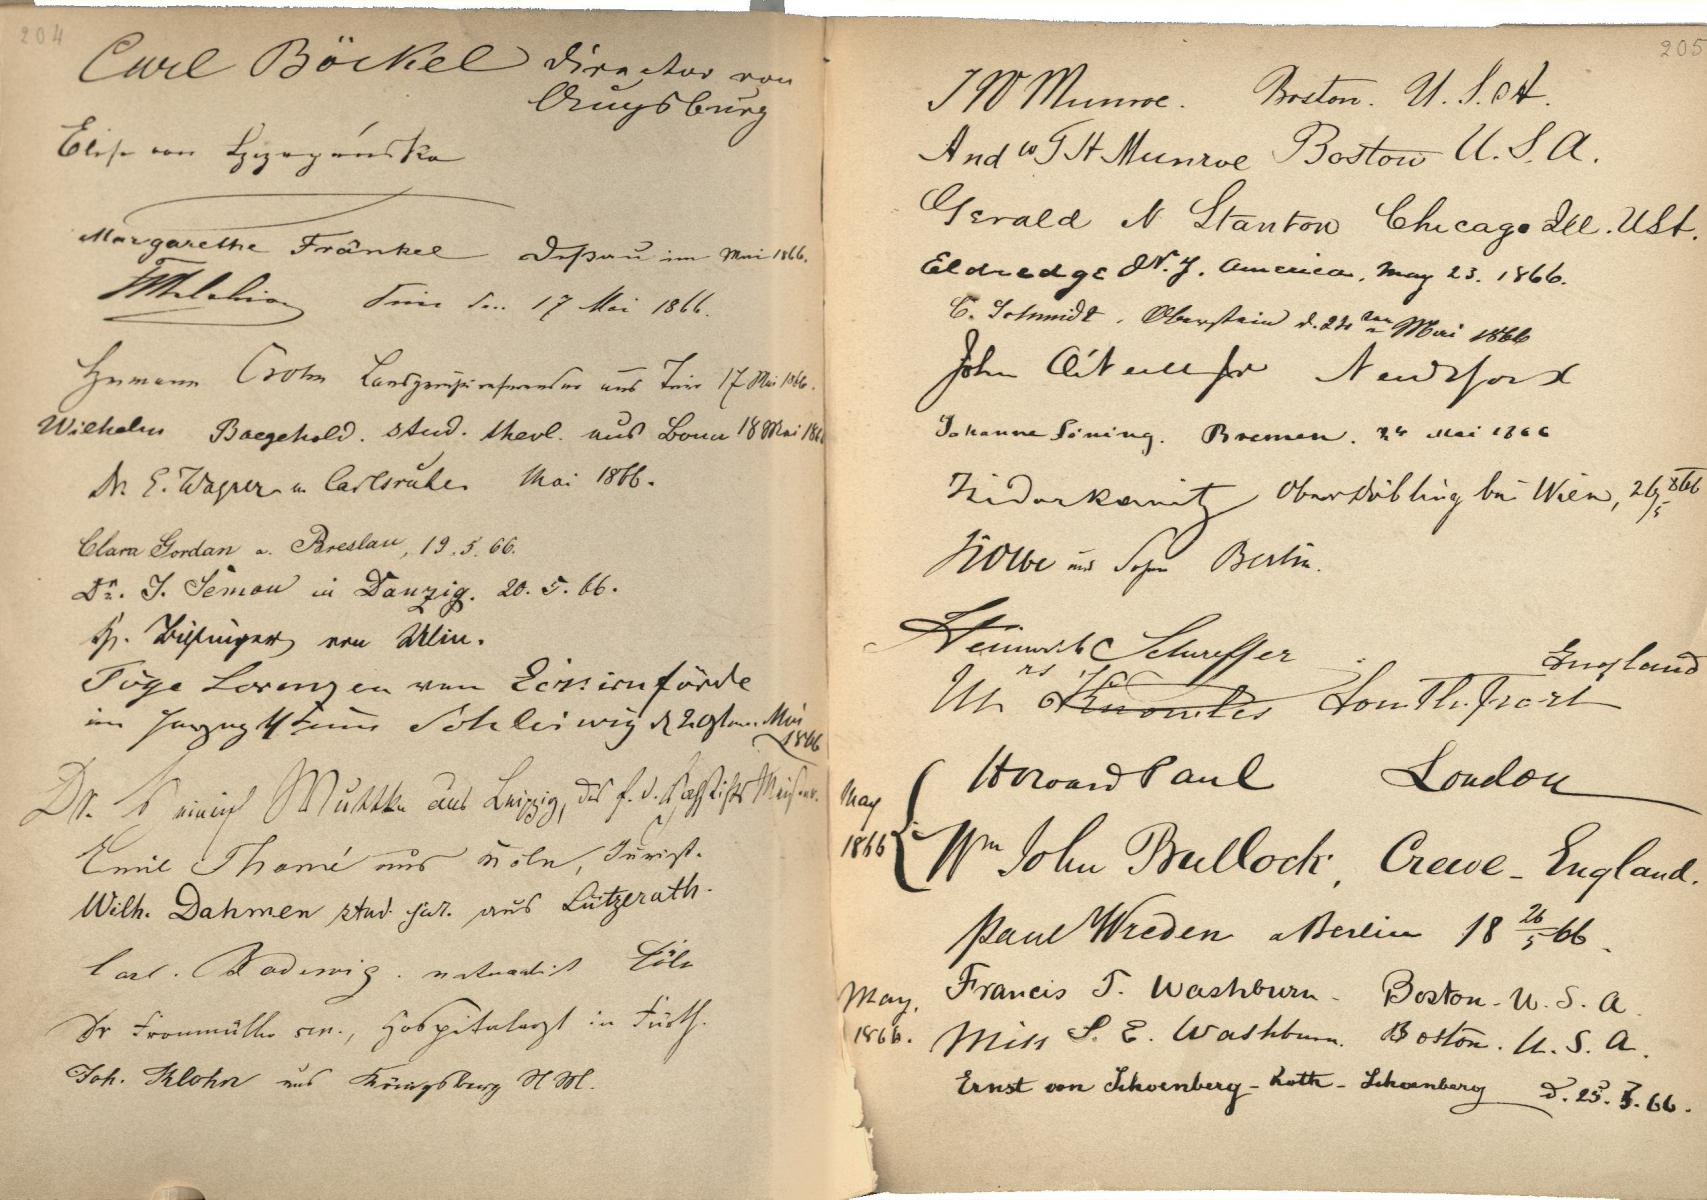 204
Carl Böckel Director von
Augsburg
Elise von
Margarethe Fränkel Dessau im Mai 1866.
17 Mai 1866.
Hermann Crohn aus 17 Mai 1866.
Wilhelm Baegehold. stud. theol. aus Bonn 18 Mai 186
Dr. E. Wagner in Carlsruhe. Mai 1866.
Clara Gordan a. Breslau, 19.5.66.
Dr. J. Semon in Danzig. 20.5.66.
von Ulm.
Lorenzen von Eckernförde
im Schleswig Mai
1866
Dr. Wuttke aus Leipzig,
Emil Thomé aus Köln, Jurist.
Wilh. Dahmen stud. jur. aus Lützerath.
Carl. Cöln
Dr Fronmüller sen., Hospitalarzt in Fürth.
Joh. Klohn aus Königsberg N M.
205
J W Munroe. Boston. U. S. A.
And w T H Munroe Boston U. S. A.
Gerald N Stanton Chicago Ill. USt.
Eldredge N. Y. America. May 23. 1866.
C. Schmidt. Oberstein d. 24 ten Mai 1866
John O'Neill Jr New York
Johanne Töning. Bremen. 24 Mai 1866
Isidor Kanitz Oberdöbling bei Wien, 26/5 866
Kolbe und Sohn Berlin.
Heinrich Scheffer
England
Mrs Knowles South Port
May
1866
Howard Paul London
Wm John Bullock, Crewe - England.
Paul Wreden a Berlin 18 26/5 66.
May.
1866.
Francis T. Washburn - Boston - U. S. A.
Miss S. E. Washburn. Boston. U. S. A.
Ernst von Schoenberg - Roth - Schoenberg d. 25. 5. 66.